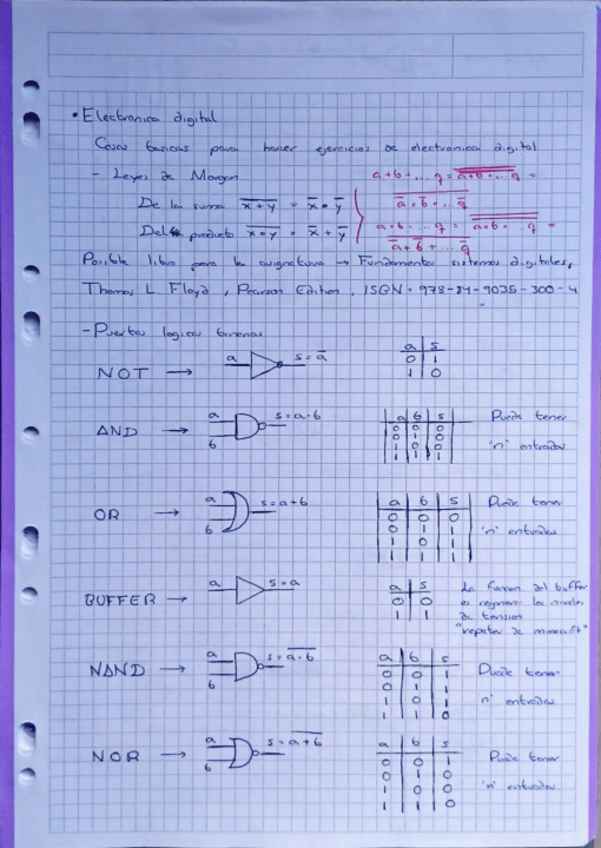 • Electronica digital
Cosas basicas para hacer ejercicios de electronica digital
- Leyes de Morgan
a+b+...q = \overline{\overline{a+b+...q}} =
De la suma \overline{x+y} = \overline{x}•\overline{y}
\overline{\overline{a}·\overline{b}·...\overline{q}}
Del producto \overline{x•y} = \overline{x}+\overline{y}
a·b·...q = \overline{\overline{a·b·...q}} =
\overline{\overline{a}+\overline{b}+...\overline{q}}
Posible libro para la asignatura → Fundamentos sistemas digitales,
Thomas L. Floyd, Pearson Edition, ISBN = 978-84-9035-300-4
- Puertas logicas binarias
NOT → a s=\overline{a}
a s
0 1
1 0
AND → a b s=a·b
a b s
0 0 0
0 1 0
1 0 0
1 1 1
Puede tener
'n' entradas
OR → a b s=a+b
a b s
0 0 0
0 1 1
1 0 1
1 1 1
Puede tener
'n' entradas
BUFFER → a s=a
a s
0 0
1 1
La funcion del buffer
es regenerar los niveles
de tension
"repetor de minecraft"
NAND → a b s=\overline{a·b}
a b s
0 0 1
0 1 1
1 0 1
1 1 0
Puede tener
n' entradas
NOR → a b s=\overline{a+b}
a b s
0 0 1
0 1 0
1 0 0
1 1 0
Puede tener
'n' entradas